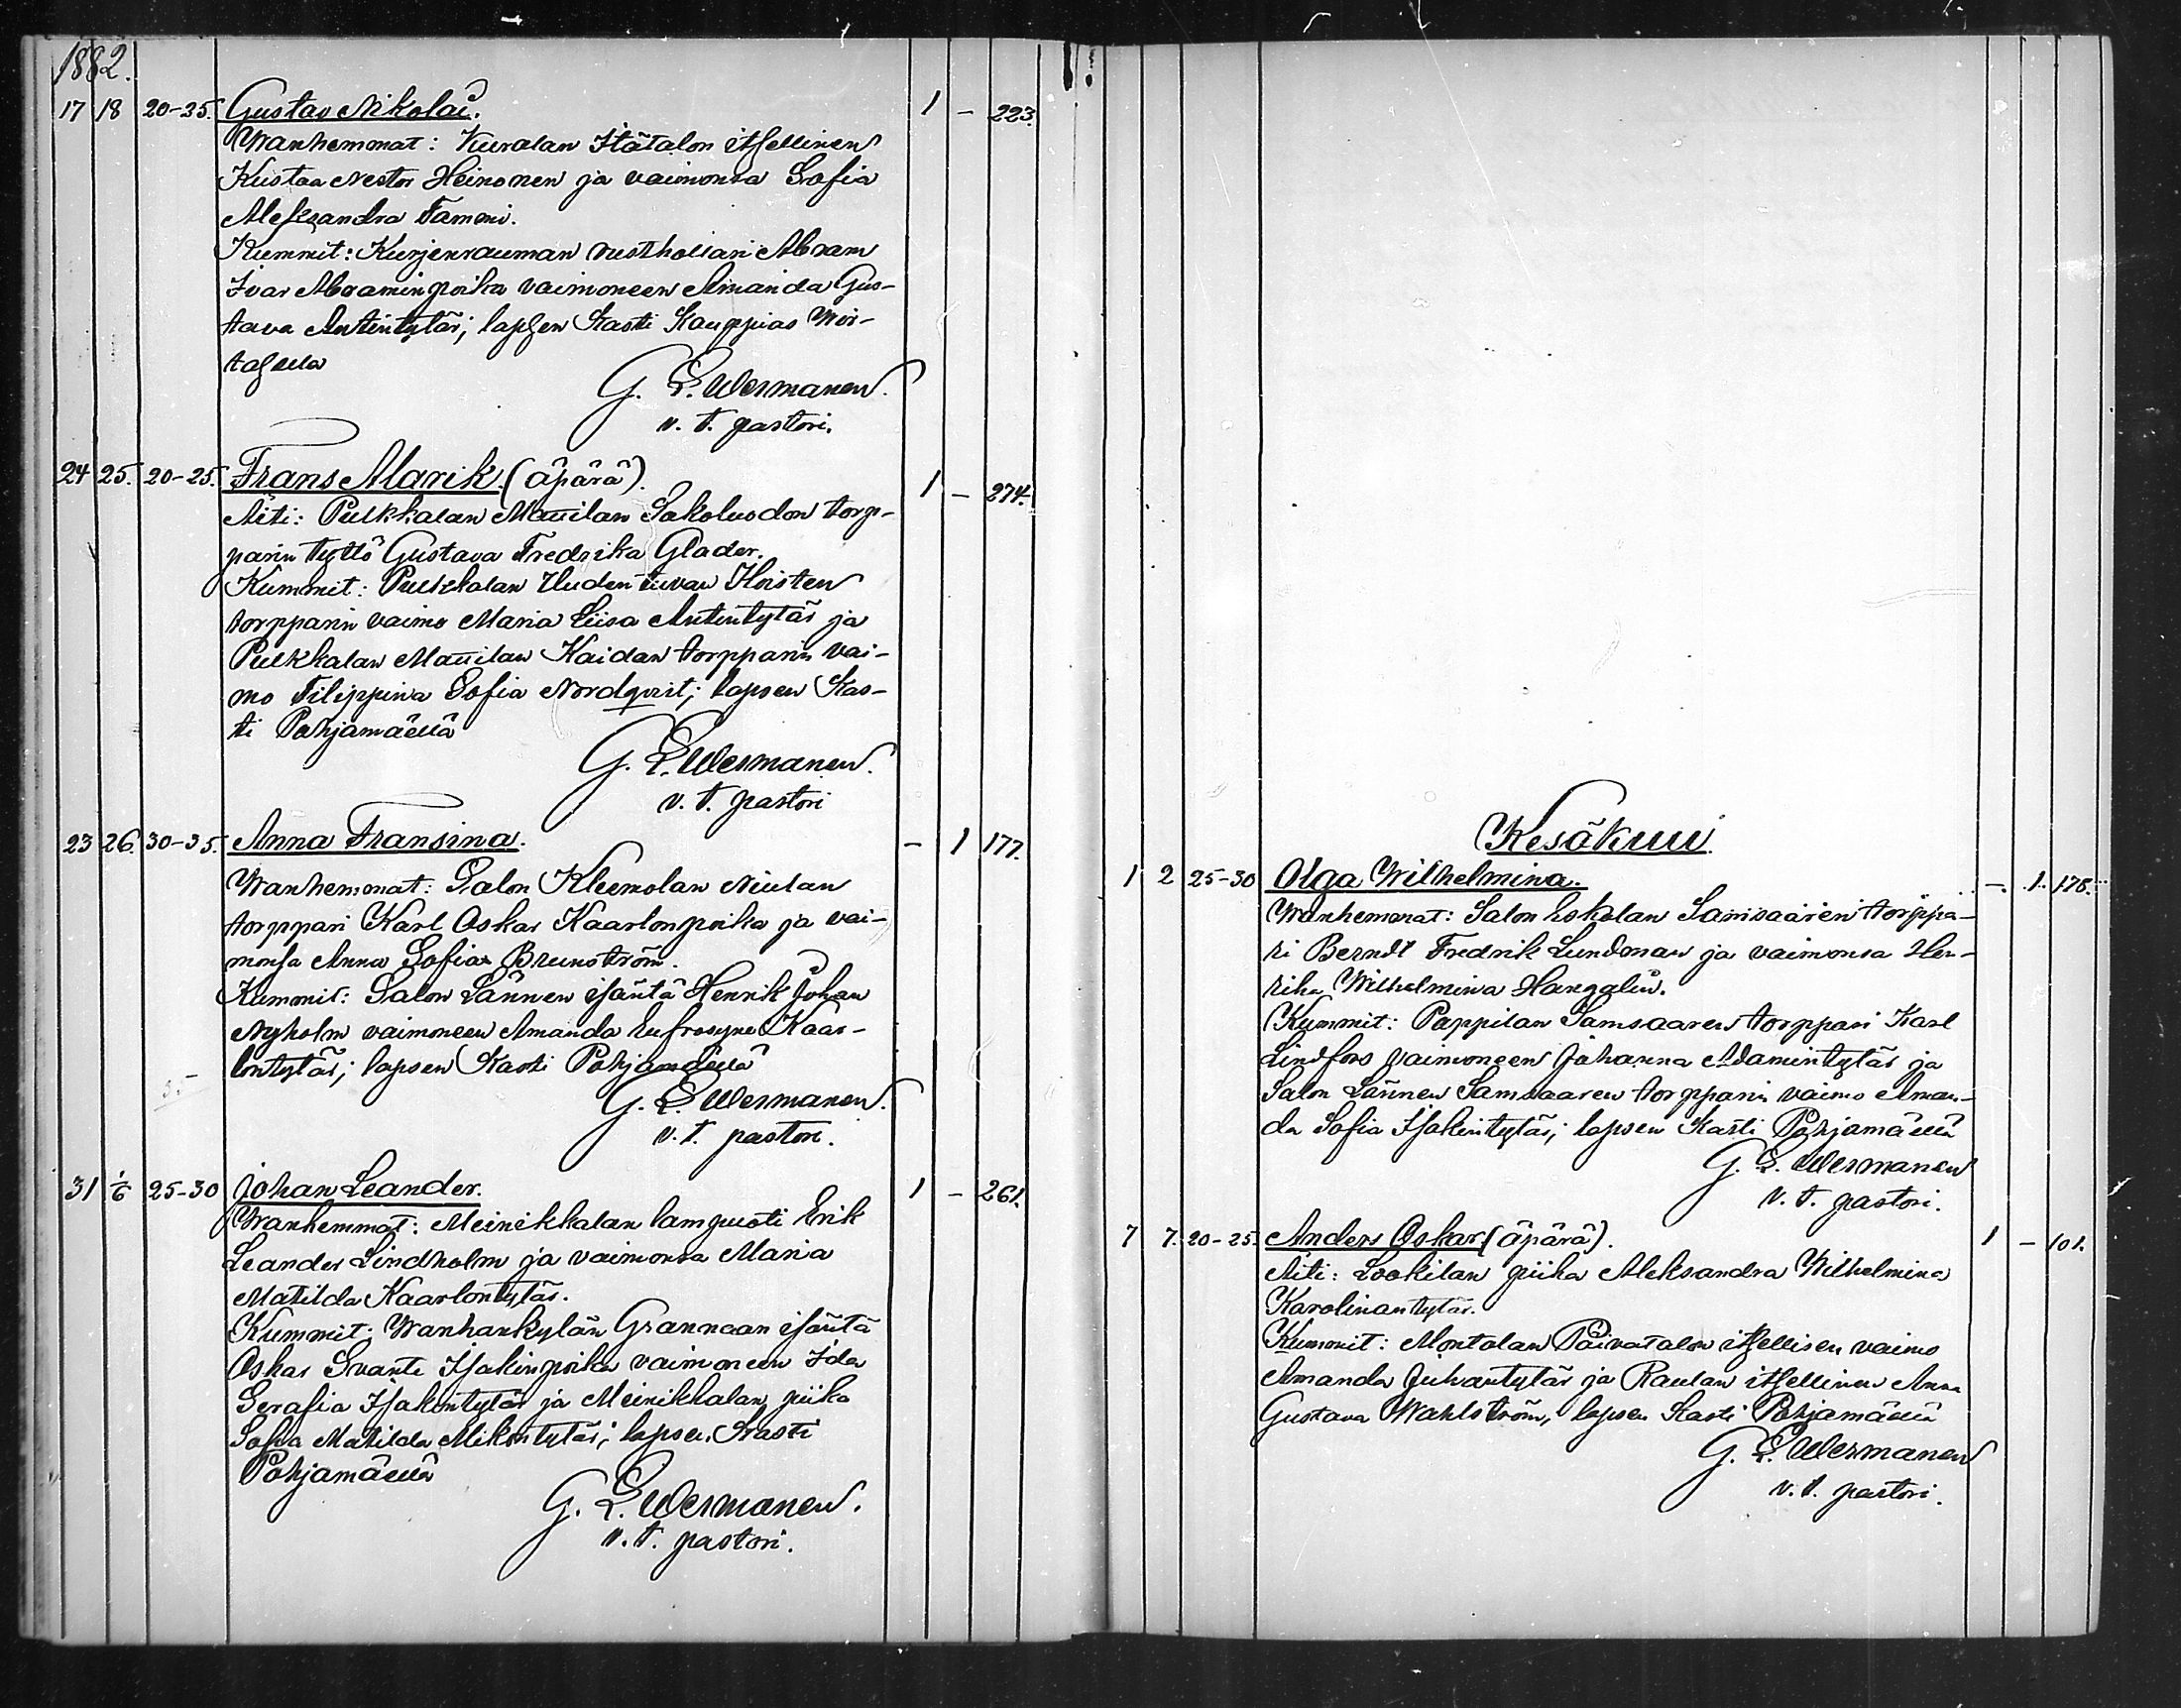 1882.
17 18 20-25. Gustav Nikolai. 1 - 223.
Wanhemmat: Kuralan Itätalon itsellinen
Kustaa Nestor Heinonen ja vaimonsa Sofia
Aleksandra Tammi.
Kummit: Kurjenrauman rusthollari Abram
Ivar Abraminpoika vaimoneen Amanda Gus-
tava Antintytär; lapsen kasti Kauppias Wir-
tasella
G. E. Wermanen.
v. t. pastori.
24 25. 20-25. Frans Alarik. (äpärä). 1 - 274.
Äiti: Pulkkalan Mattilan Sakoluodon torp-
parin tyttö Gustava Fredrika Glader.
Kummit: Pulkkalan Uudentuvan Hoisten
torpparin vaimo Maria Liisa Antintytär ja
Pulkkalan Mattilan Kaidan torpparin vai-
mo Filippina Sofia Nordqvist; lapsen kas-
ti Pohjamäellä
G. E. Wermanen.
v. t. pastori
23 26. 30-35. Anna Fransina. - 1 177.
Wanhemmat: Salon Kleemolan Niulan
torppari Karl Oskar Kaarlonpoika ja vai-
monsa Anna Sofia Brunström.
Kummit: Salon Lännen isäntä Henrik Johan
Nyholm vaimoneen Amanda Eufrosyne Kaar-
lontytär; lapsen kasti Pohjamäellä
G. E. Wermanen.
v. t. pastori.
31 1/6 25-30 Johan Leander. 1 - 261.
Wanhemmat: Meinikkalan lampuoti Erik
Leander Lindholm ja vaimonsa Maria
Matilda Kaarlontytär.
Kummit: Wanhankylän Grannaan isäntä
Oskar Svante Isakinpoika vaimoneen Ida
Serafia Isakintytär ja Meinikkalan piika
Sofia Matilda Mikontytär; lapsen kasti
Pohjamäellä
G. E. Wermanen.
v. t. pastori.
Kesäkuu
1 2 25-30 Olga Wilhelmina. - 1. 178.
Wanhemmat: Salon Samsaaren torppa-
ri Berndt Fredrik Lundman ja vaimonsa Hen-
rika Wilhelmina
Kummit: Pappilan Samsaaren torppari Karl
Lindfors vaimoneen Johanna Adamintytär ja
Salon Lännen Samsaaren torpparin vaimo Aman-
da Sofia Isakintytär; lapsen kasti Pohjamäellä
G. E. Wermanen
v. t. pastori.
7 7. 20-25. Anders Oskar. (äpärä). 1 - 101.
Äiti: Lookilan piika Aleksandra Wilhelmina
Karolinantytär.
Kummit: Montolan Päivätalon itsellisen vaimo
Amanda Juhantytär ja Raulan itsellinen Anna
Gustava Wahlström, lapsen kasti Pohjamäellä
G. E. Wermanen
v. t. pastori.